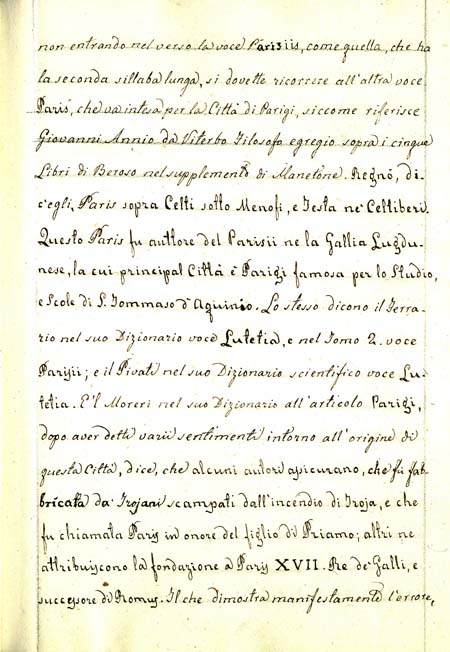 non entrando nel verso la voce Parisiis, come quella, che ha
la seconda sillaba lunga, si dovette ricorrere all'altra voce
Paris, che va intesa per la Città di Parigi, siccome riferisce
Giovanni Annio da Viterbo Filosofo egregio sopra i cinque
Libri di Beroso nel supplemento di Manetone. Regnò, di-
c'egli, Paris sopra Celti sotto Menofi, e Testa ne' Celtiberi.
Questo Paris fu auttore del Parisii ne la Gallia Lugdu-
nese, la cui principal Città è Parigi famosa per lo Studio,
e Scole di S. Tommaso d'Aquinio. Lo stesso dicono il Ferra-
rio nel suo Dizionario voce Lutetia, e nel Tomo 2. voce
Parisii; e il Pivati nel suo Dizionario scientifico voce Lu-
tetia. E'l Moreri nel suo Dizionario all'articolo Parigi,
dopo aver detti varii sentimenti intorno all'origine di
questa Città, dice, che alcuni autori assicurano, che fù fab-
bricata da' Trojani scampati dall'incendio di Troja, e che
fu chiamata Paris in onore del figlio di Priamo; altri ne
attribuiscono la fondazione à Paris XVII. Re de' Galli, e
successore di Romus. Il che dimostra manifestamente l'errore,